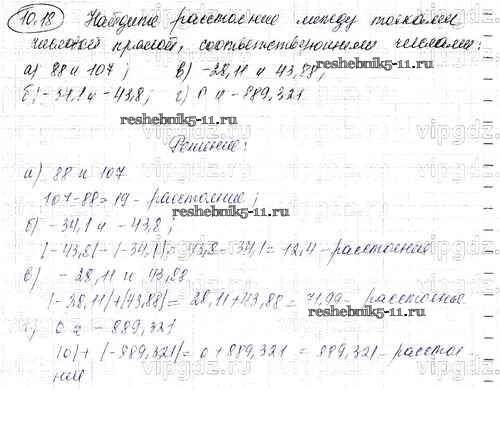 10.18 Найдите расстояние между точками
числовой прямой, соответствующими числами:
а) 88 и 107; в) -28,11 и 43,88;
б) -34,1 и -43,8; г) 0 и -889,321
reshebnik5-11.ru
Решение:
а) 88 и 107
107-88=19 - расстояние;
reshebnik5-11.ru
б) -34,1 и -43,8;
|-43,8|-|-34,1|= 43,8-34,1= 12,4 - расстояние
в) -28,11 и 43,88
|-28,11|+|43,88|= 28,11+43,88 = 71,99 - расстояние
reshebnik5-11.ru
г) 0 и -889,321
|0|+|-889,321|= 0+889,321 = 889,321 - расстоя-
ние